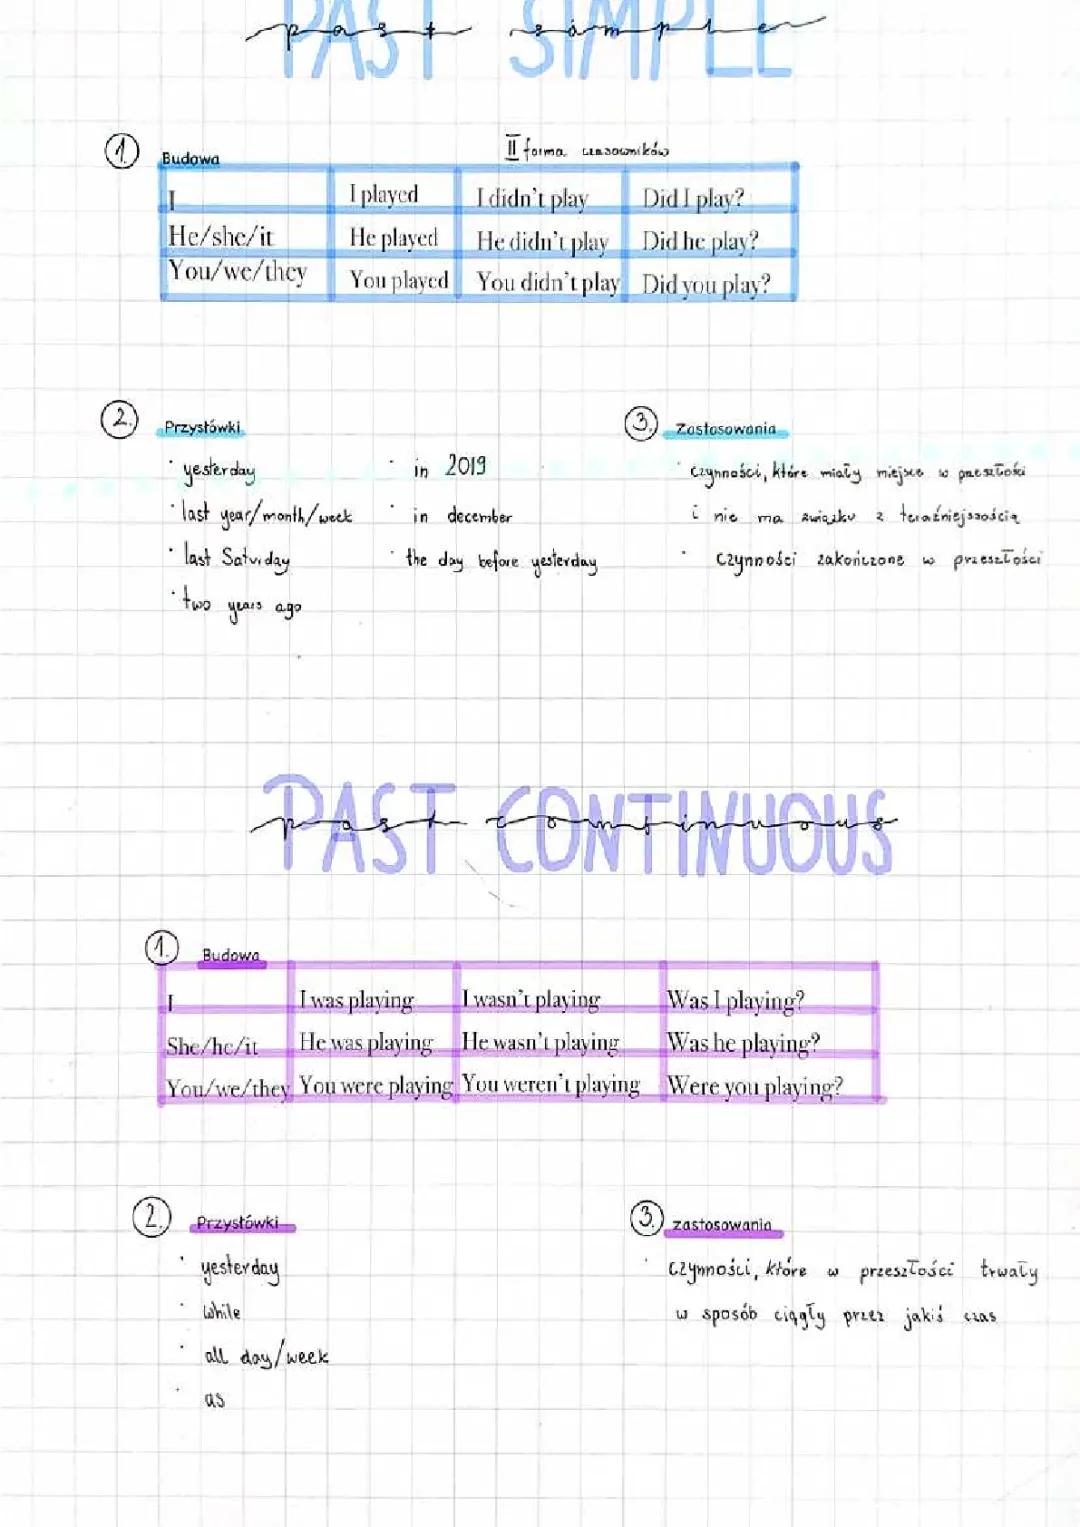 PAST SIMPLE
past simple
1. Budowa
II forma czasowników
I | I played | I didn't play | Did I play?
He/she/it | He played | He didn't play | Did he play?
You/we/they | You played | You didn't play | Did you play?
2. Przysłówki
· yesterday
· last year/month/week
· last Saturday
· two years ago
· in 2019
· in december
· the day before yesterday
3. Zastosowania
· czynności, które miały miejsce w przeszłości
i nie ma związku z teraźniejszością
· czynności zakończone w przeszłości
PAST CONTINUOUS
past continuous
1. Budowa
I | I was playing | I wasn't playing | Was I playing?
She/he/it | He was playing | He wasn't playing | Was he playing?
You/we/they | You were playing | You weren't playing | Were you playing?
2. Przysłówki
· yesterday
· while
· all day/week
· as
3. zastosowania
· czynności, które w przeszłości trwały
w sposób ciągły przez jakiś czas